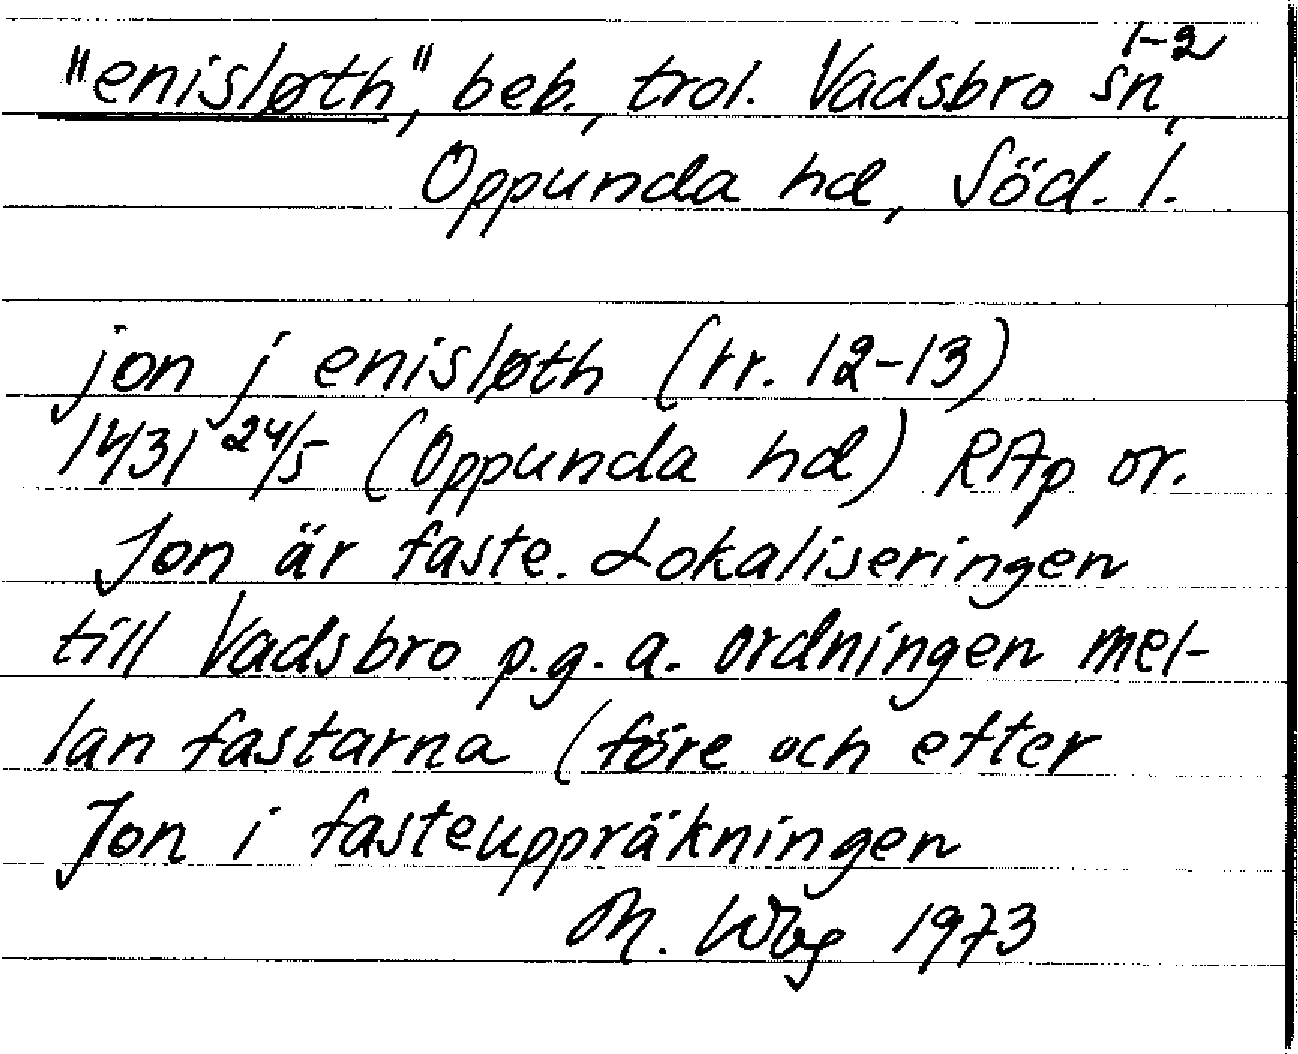 "enisløth", beb., trol. Vadsbro sn, 1-2
Oppunda hd, Söd. l.
jon j enisløth (rr. 12-13)
1431 24/5 (Oppunda hd) RAp or.
Jon är faste. Lokaliseringen
till Vadsbro p.g.a. ordningen mel-
lan fastarna (före och efter
Jon i fasteuppräkningen
M. Wbg 1973